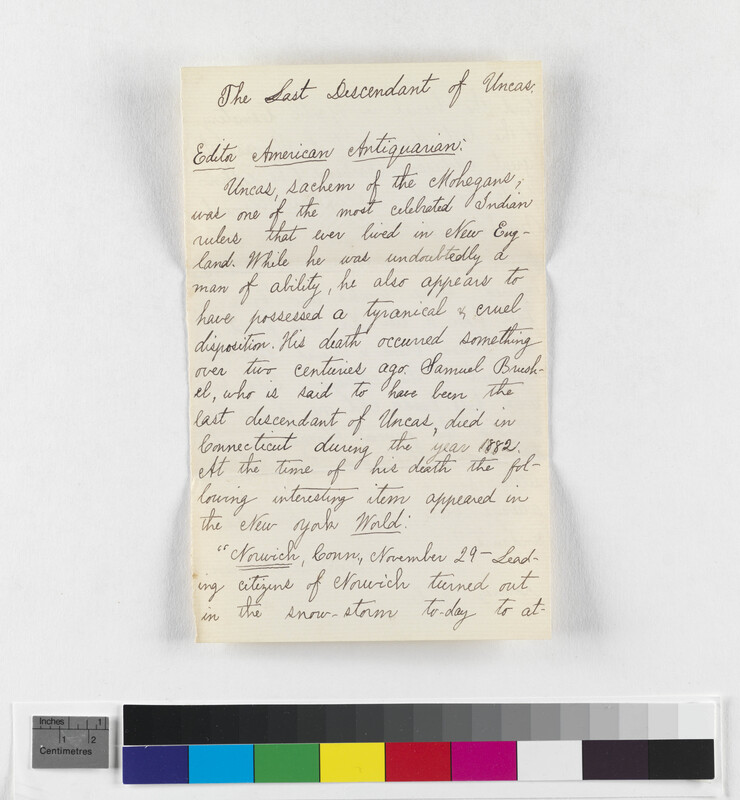 The Last Descendant of Uncas.
Editor American Antiquarian:
Uncas, sachem of the Mohegans,
was one of the most celebrated Indian
rulers that ever lived in New Eng-
land. While he was undoubtedly a
man of ability, he also appears to
have possessed a tyranical & cruel
disposition. His death occurred something
over two centuries ago. Samuel Brush-
el, who is said to have been the
last descendant of Uncas, died in
Connecticut during the year 1882.
At the time of his death the fol-
lowing interesting item appeared in
the New York World:
"Norwich, Conn., November 29 - Lead-
ing citizens of Norwich turned out
in the snow-storm to-day to at-
Inches 1
1 2
Centimetres